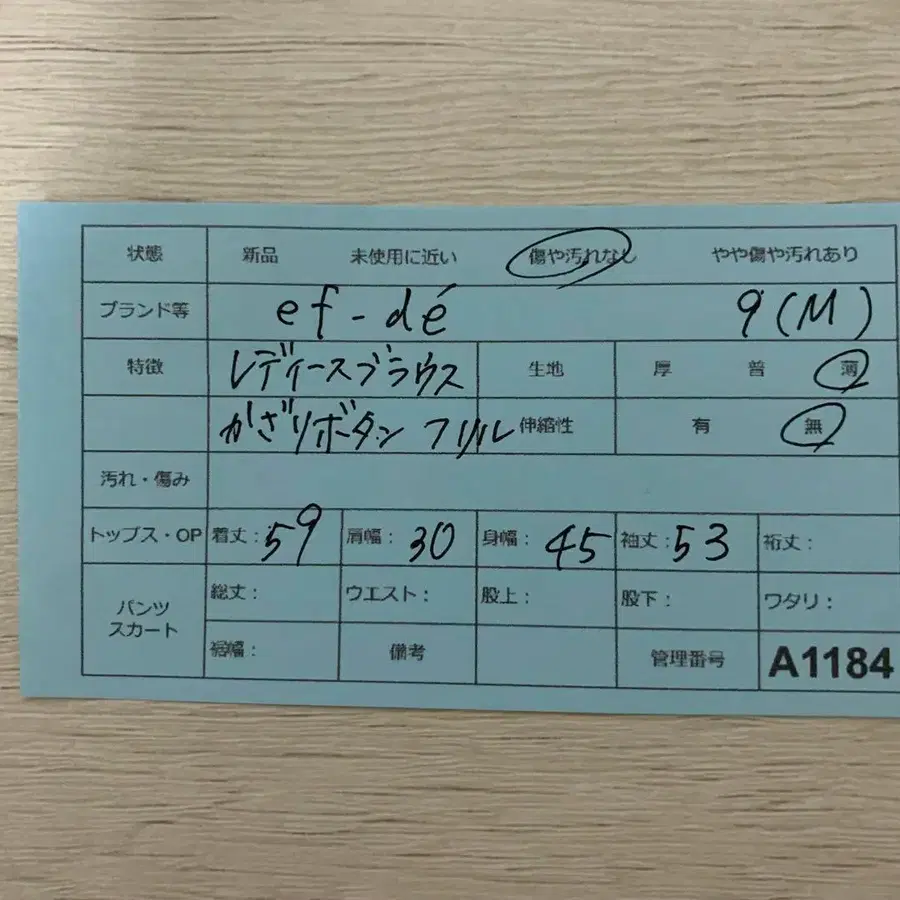 状態 新品 未使用に近い 傷や汚れなし やや傷や汚れあり
ブランド等 ef-dé 9(M)
特徴 レディースブラウス 生地 厚 普 薄
かざりボタン フリル 伸縮性 有 無
汚れ・傷み
トップス・OP 着丈:59 肩幅:30 身幅:45 袖丈:53 裄丈:
パンツ スカート 総丈: ウエスト: 股上: 股下: ワタリ:
裾幅: 備考 管理番号 A1184